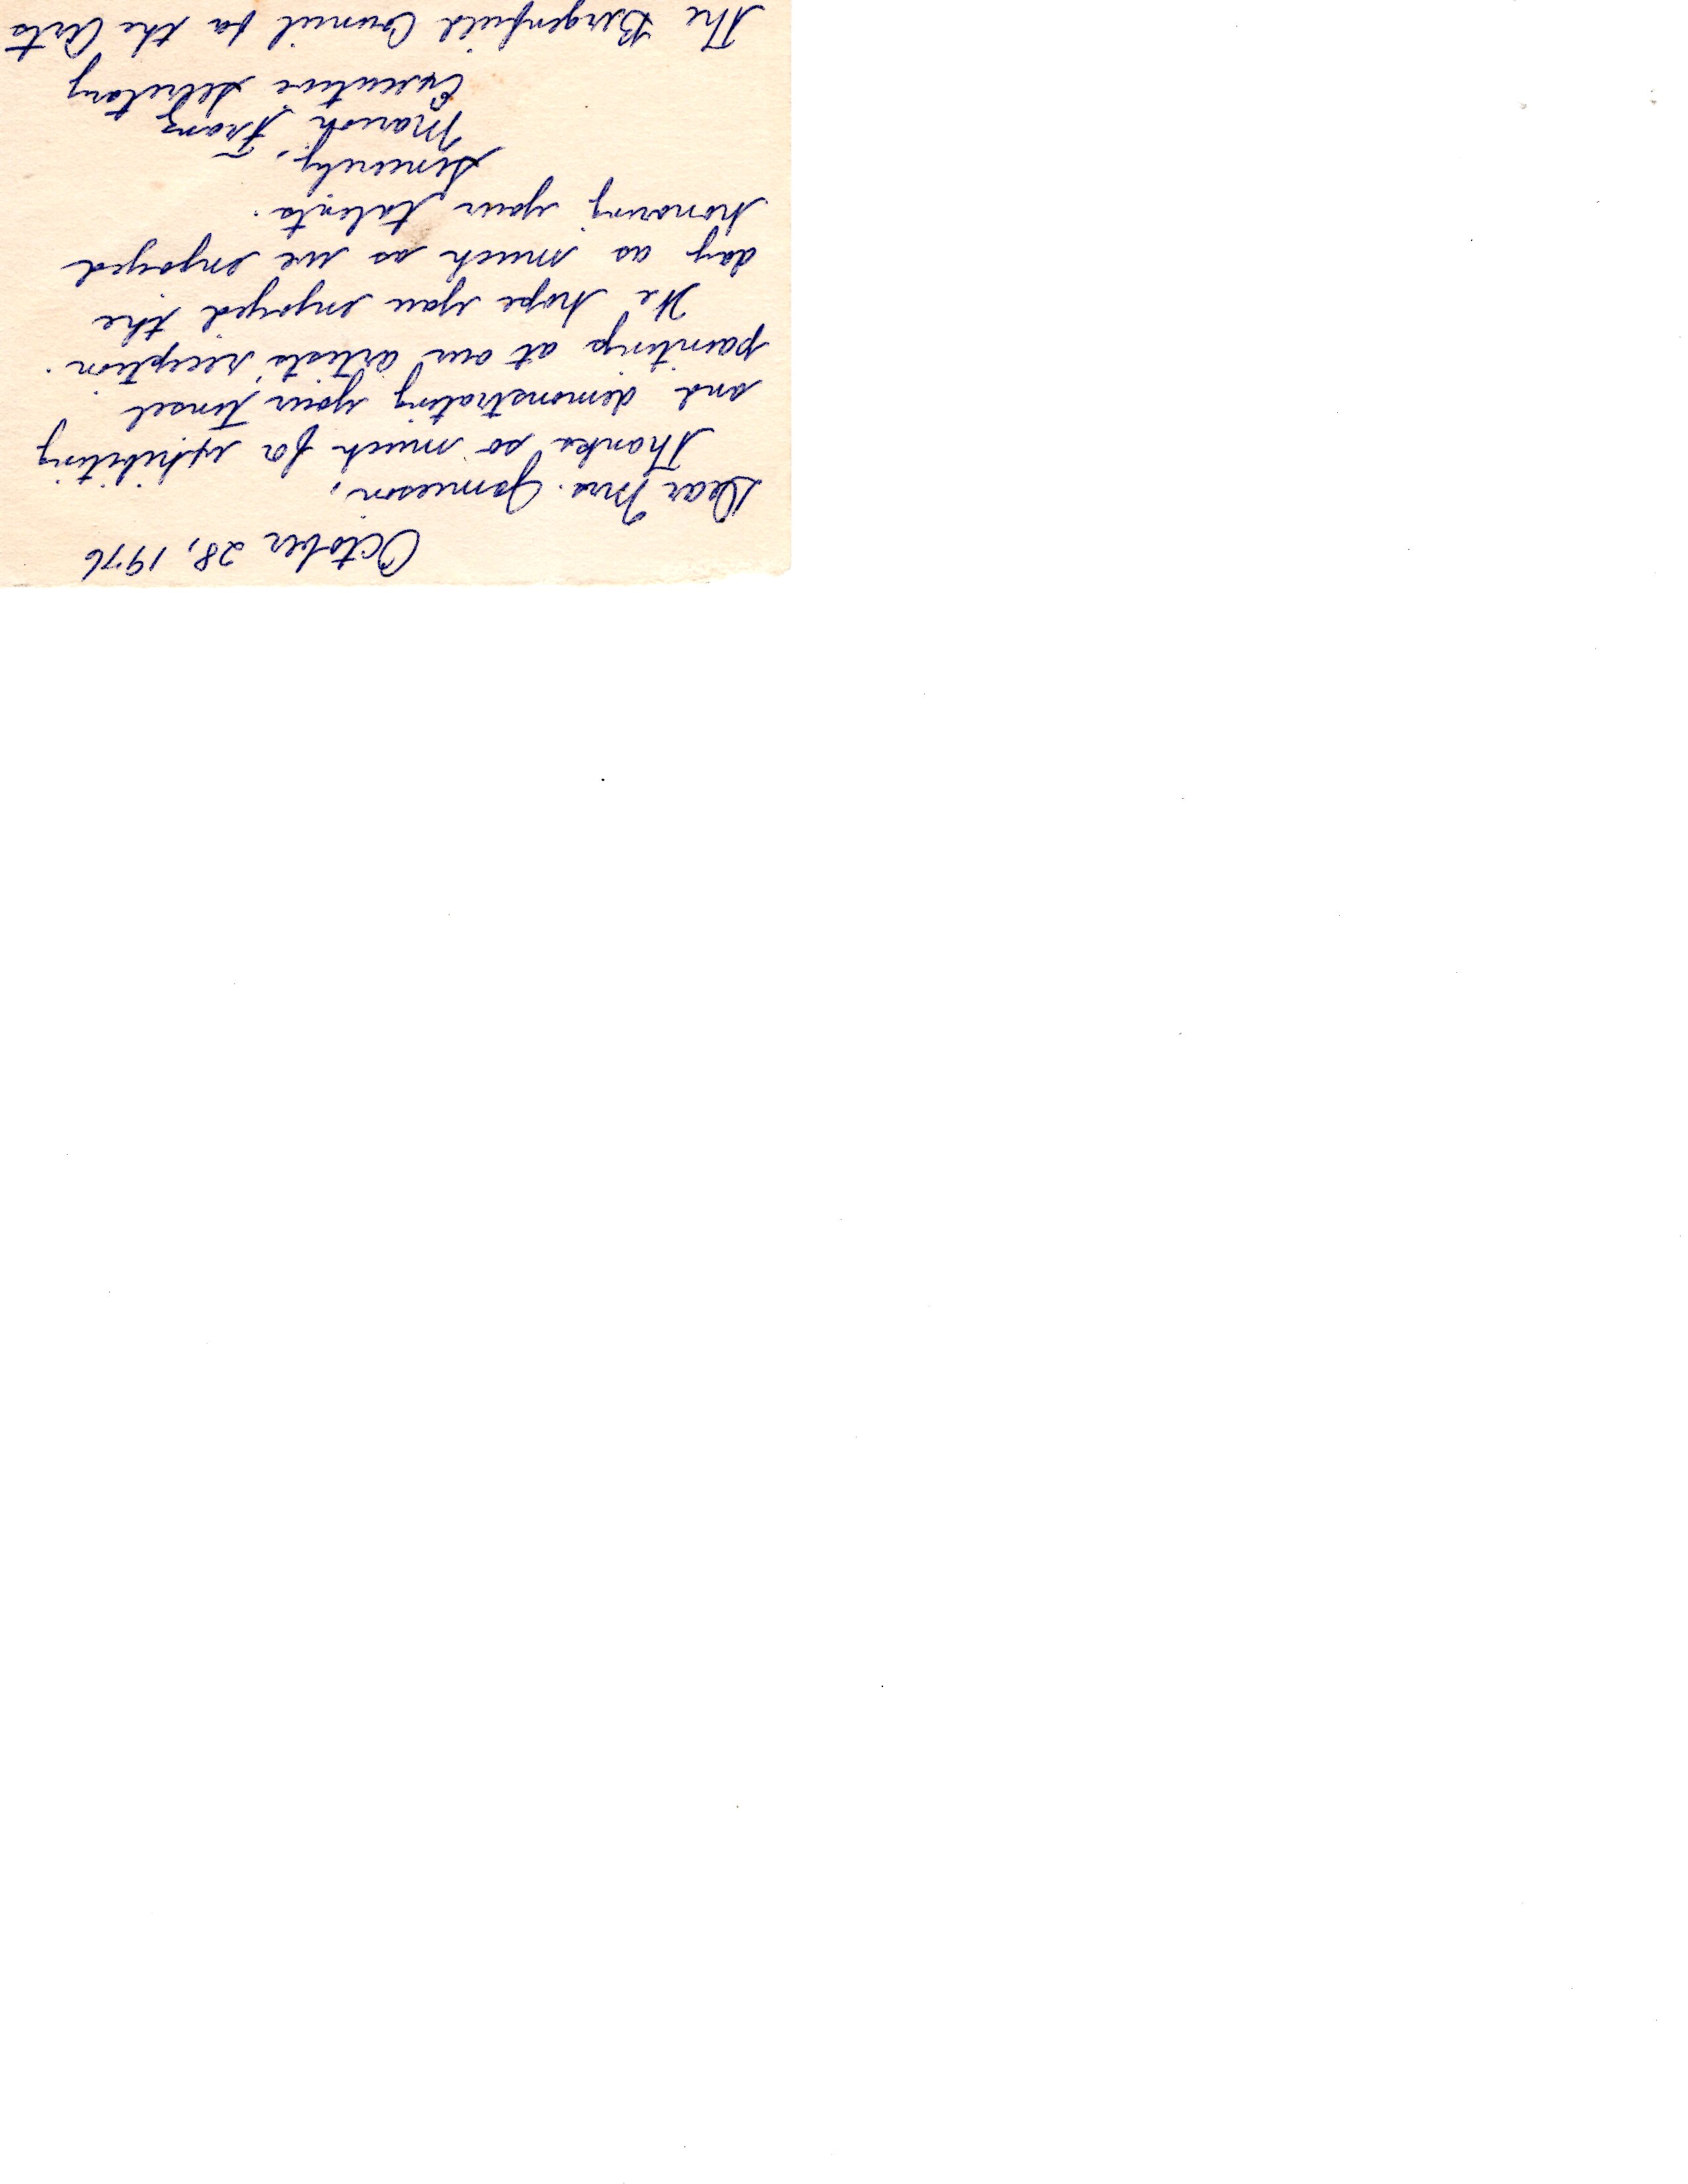 October 28, 1976
Dear Mrs. Jamieson,
Thanks so much for exhibiting
and demonstrating your Tinsel
paintings at our artists' reception.
We hope you enjoyed the
day as much as we enjoyed
honoring your talents.
Sincerely,
Franz
Executive Secretary
The Bergenfield Council for the Arts